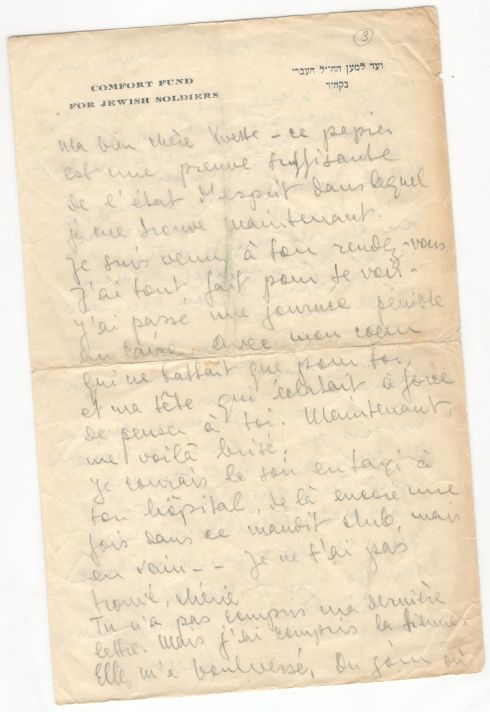 3
COMFORT FUND
FOR JEWISH SOLDIERS
ועד למען החייל העברי
בקהיר
Ma bien chère Yvette - ce papier
est une preuve suffisante
de l'état d'esprit dans lequel
je me trouve maintenant.
Je suis venu à ton rendez-vous.
J'ai tout fait pour te voir.
J'ai passé une journée penible
au Caire. Avec mon coeur
qui ne battait que pour toi,
et ma tête qui éclatait à force
de penser à toi. Maintenant,
me voilà brisé.
Je courais le soir en taxi à
ton hôpital, de là encore une
fois dans ce maudit club, mais
en vain - - Je ne t'ai pas
trouvé, chérie
Tu n'a pas compris ma dernière
lettre. Mais j'ai compris la tienne.
Elle m'a boulversé. Du jour où